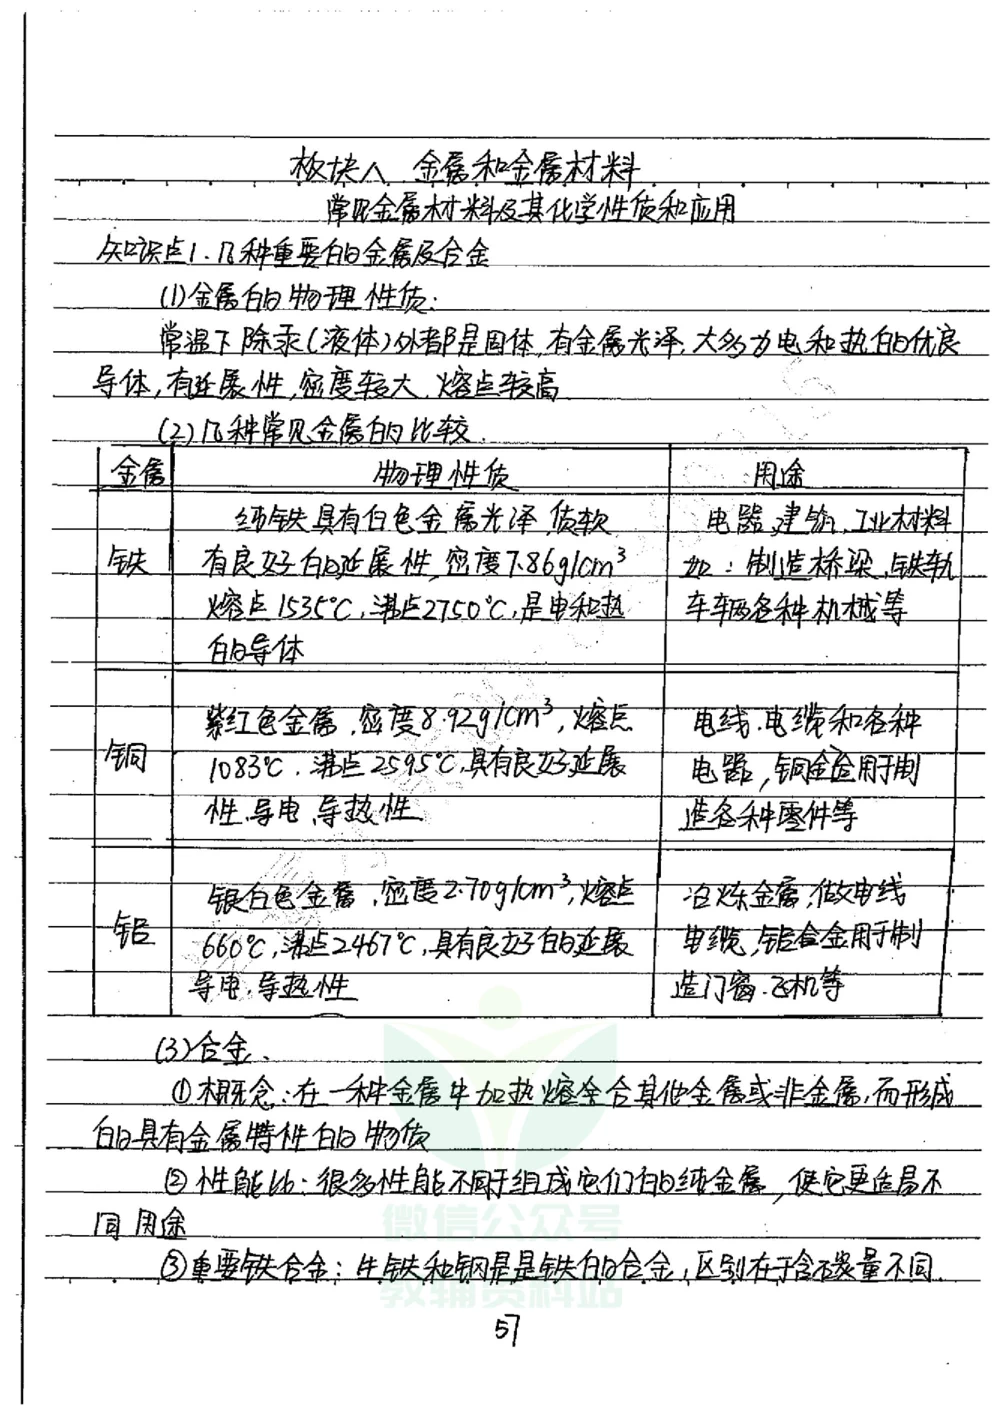 板块八 金属和金属材料
常见金属材料及其化学性质和应用
知识点1.几种重要的金属及合金
(1)金属的物理性质:
常温下除汞(液体)外都是固体,有金属光泽,大多为电和热的优良
导体,有延展性,密度较大.熔点较高
(2)几种常见金属的比较.
金属 物理性质 用途
铁
纯铁具有白色金属光泽,质软
有良好的延展性,密度7.86g/cm³
熔点1535℃,沸点2750℃,是电和热
的导体
电器,建筑,工业材料
如:制造桥梁,铁轨
车辆各种机械等
铜
紫红色金属,密度8.92g/cm³,熔点
1083℃,沸点2595℃,具有良好延展
性.导电.导热性
电线.电缆和各种
电器,铜合金用于制
造各种零件等
铝
银白色金属,密度2.70g/cm³,熔点
660℃,沸点2467℃,具有良好的延展
导电.导热性
冶炼金属,做电线
电缆,铝合金用于制
造门窗.飞机等
(3)合金.
①概念:在一种金属中加热熔合其他金属或非金属,而形成
的具有金属特性的物质
②性能比:很多性能不同于组成它们的纯金属,使它更适易不
同用途
③重要铁合金:生铁和钢是是铁的合金,区别在于含碳量不同.
微信公众号
教辅资料站
57